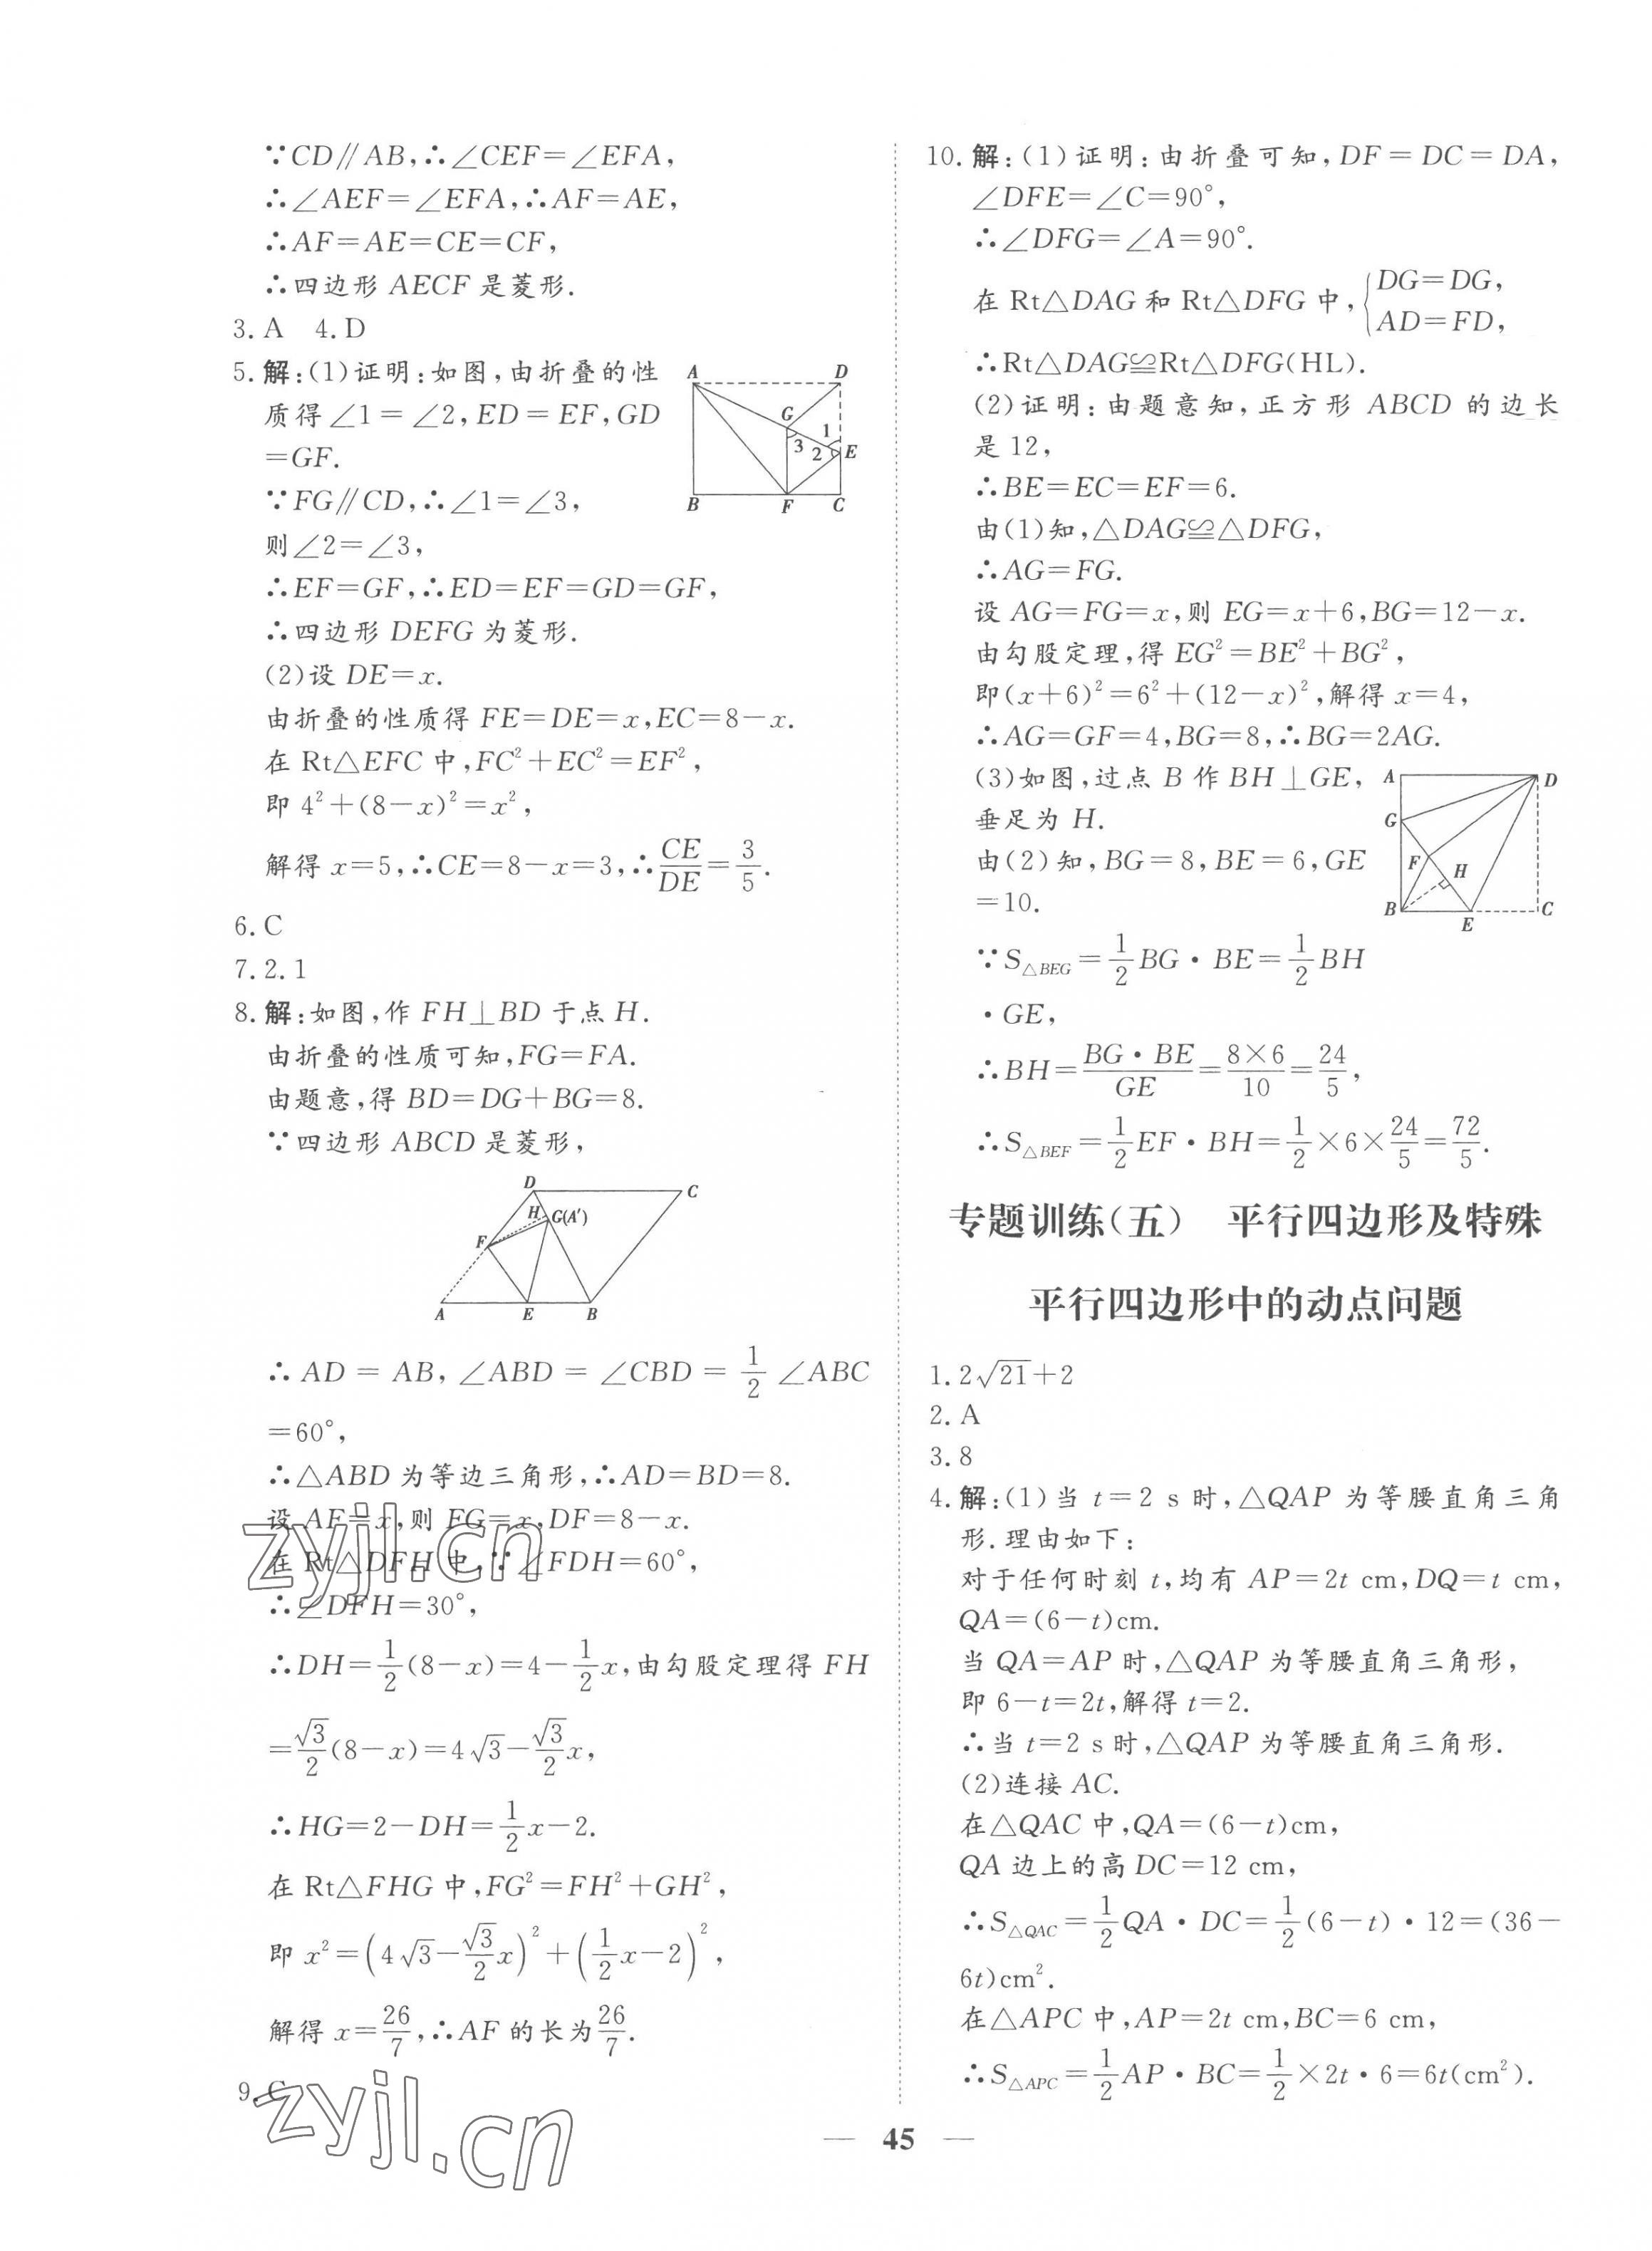 ∵CD∥AB,∴∠CEF=∠EFA,
∴∠AEF=∠EFA,∴AF=AE,
∴AF=AE=CE=CF,
∴四边形 AECF 是菱形.
3. A　4. D
5. 解:(1)证明:如图,由折叠的性
质得∠1=∠2,ED=EF,GD
=GF.
∵FG∥CD,∴∠1=∠3,
则∠2=∠3,
∴EF=GF,∴ED=EF=GD=GF,
∴四边形 DEFG 为菱形.
A D G 1 3 2 E B F C
(2)设 DE=x.
由折叠的性质得 FE=DE=x,EC=8-x.
在 Rt△EFC 中,FC²+EC²=EF²,
即 4²+(8-x)²=x²,
解得 x=5,∴CE=8-x=3,∴CE/DE=3/5.
6. C
7. 2.1
8. 解:如图,作 FH⊥BD 于点 H.
由折叠的性质可知,FG=FA.
由题意,得 BD=DG+BG=8.
∵四边形 ABCD 是菱形,
D C H G(A′) F A E B
∴AD=AB,∠ABD=∠CBD=1/2∠ABC
=60°,
∴△ABD 为等边三角形,∴AD=BD=8.
设 AF=x,则 FG=x,DF=8-x.
在 Rt△DFH 中,∵∠FDH=60°,
∴∠DFH=30°,
∴DH=1/2(8-x)=4-1/2x,由勾股定理得 FH
=√3/2(8-x)=4√3-√3/2x,
∴HG=2-DH=1/2x-2.
在 Rt△FHG 中,FG²=FH²+GH²,
即 x²=(4√3-√3/2x)²+(1/2x-2)²,
解得 x=26/7,∴AF 的长为26/7.
9. C
zyjl.cn
zyjl.cn
10. 解:(1)证明:由折叠可知,DF=DC=DA,
∠DFE=∠C=90°,
∴∠DFG=∠A=90°.
在 Rt△DAG 和 Rt△DFG 中,{DG=DG,
AD=FD,
∴Rt△DAG≌Rt△DFG(HL).
(2)证明:由题意知,正方形 ABCD 的边长
是 12,
∴BE=EC=EF=6.
由(1)知,△DAG≌△DFG,
∴AG=FG.
设 AG=FG=x,则 EG=x+6,BG=12-x.
由勾股定理,得 EG²=BE²+BG²,
即(x+6)²=6²+(12-x)²,解得 x=4,
∴AG=GF=4,BG=8,∴BG=2AG.
(3)如图,过点 B 作 BH⊥GE,
垂足为 H.
由(2)知,BG=8,BE=6,GE
=10.
A D G F H B E C
∵S△BEG=1/2BG·BE=1/2BH
·GE,
∴BH=BG·BE/GE=8×6/10=24/5,
∴S△BEF=1/2EF·BH=1/2×6×24/5=72/5.
专题训练(五)　平行四边形及特殊
平行四边形中的动点问题
1. 2√21+2
2. A
3. 8
4. 解:(1)当 t=2 s 时,△QAP 为等腰直角三角
形.理由如下:
对于任何时刻 t,均有 AP=2t cm,DQ=t cm,
QA=(6-t)cm.
当 QA=AP 时,△QAP 为等腰直角三角形,
即 6-t=2t,解得 t=2.
∴当 t=2 s 时,△QAP 为等腰直角三角形.
(2)连接 AC.
在△QAC 中,QA=(6-t)cm,
QA 边上的高 DC=12 cm,
∴S△QAC=1/2QA·DC=1/2(6-t)·12=(36-
6t)cm².
在△APC 中,AP=2t cm,BC=6 cm,
∴S△APC=1/2AP·BC=1/2×2t·6=6t(cm²).
— 45 —